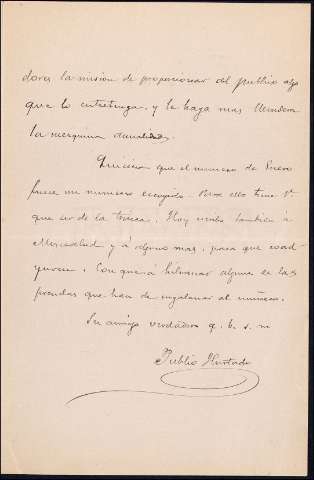 dores la mision de proporcionar al publico algo
que lo entretenga, y le haga mas llevadera
la mezquina
Quisiera que el numero de Enero
fuese un numero escogido. Para ello tiene V.
que ser de la Hoy escribo tambien á
y á alguno mas, para que coad
yuven. Con que á hilvanar alguna de las
prendas que han de engalanar al número.
Su amigo verdadero q. b. s. m
Publio Hurtado